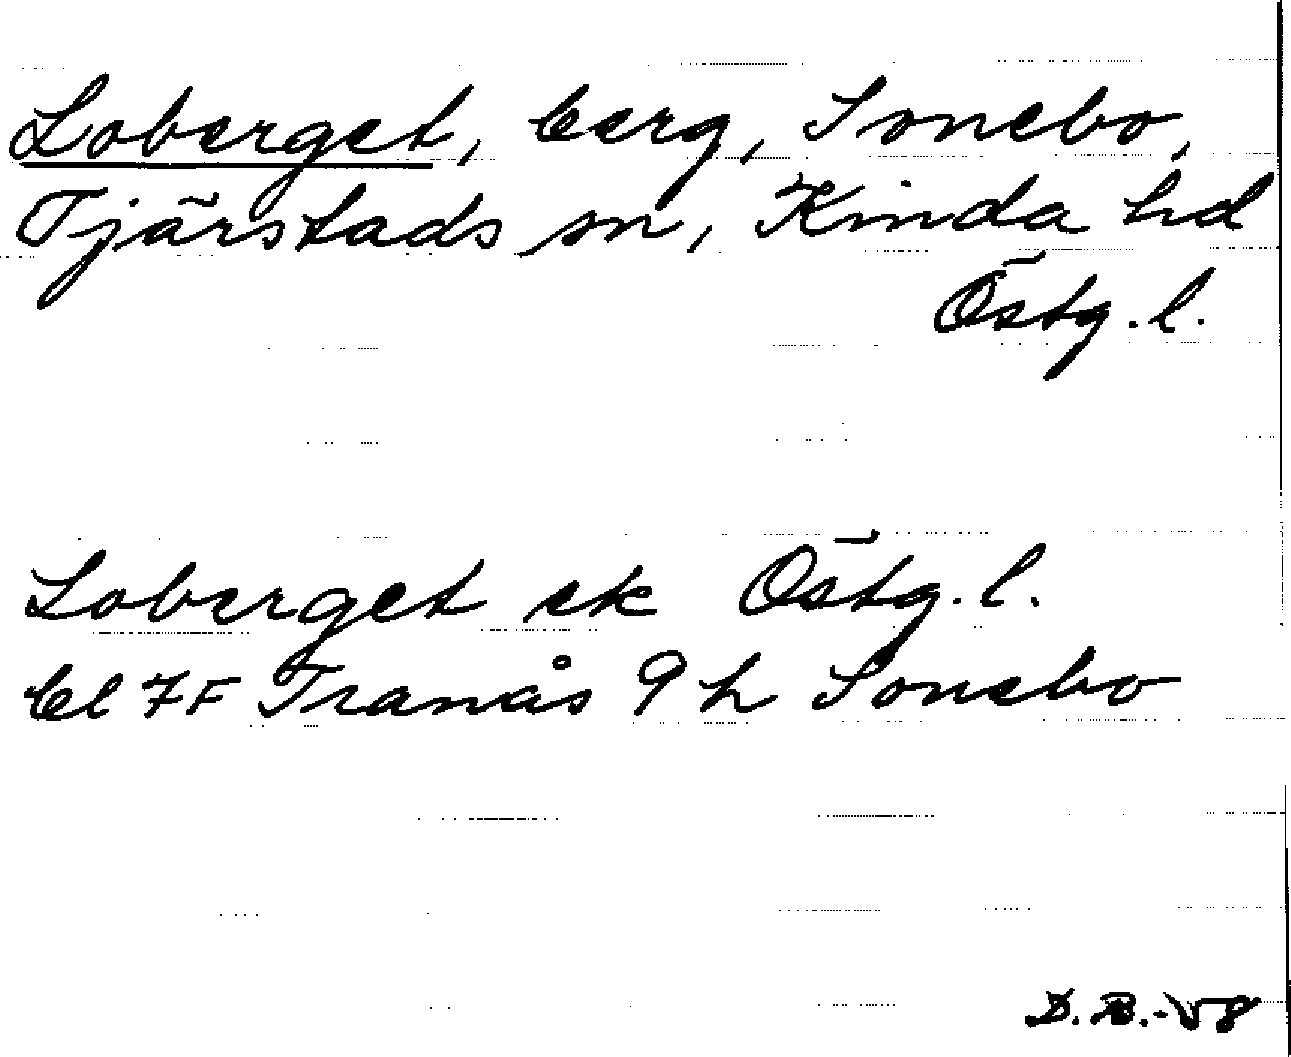 Loberget, berg, Sonebo,
Tjärstads sn, Kinda hd
Östg. l.
Loberget ek Östg. l.
bl 7F Tranås 9 h Sonebo
D. B. -58